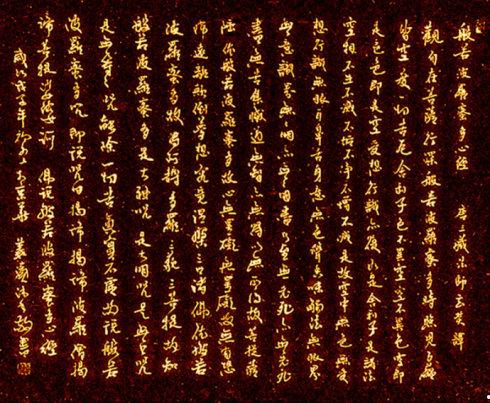 般若波羅蜜多心經 唐三藏法師玄奘譯
觀自在菩薩行深般若波羅蜜多時照見五蘊
皆空度一切苦厄舍利子色不異空空不異色空即
是色色即是空受想行識亦復如是舍利子是諸法
空相不生不滅不垢不淨不增不減是故空中無色無受
想行識無眼耳鼻舌身意無色聲香味觸法無眼界
無意識界無無明亦無無明盡乃至無老死亦無老死
盡無苦集滅道無智亦無得以無所得故菩提薩
埵依般若波羅蜜多故心無罣礙無罣礙故無有恐
怖遠離顛倒夢想究竟涅槃三世諸佛依般若
波羅蜜多故得阿耨多羅三藐三菩提故知
般若波羅蜜多是大神咒是大明咒是無上咒
是無等等咒能除一切苦真實不虛故說般若
波羅蜜多咒即說咒曰揭諦揭諦波羅僧揭
諦菩提薩婆訶 說般若波羅蜜多心經
歲次戊子年 書